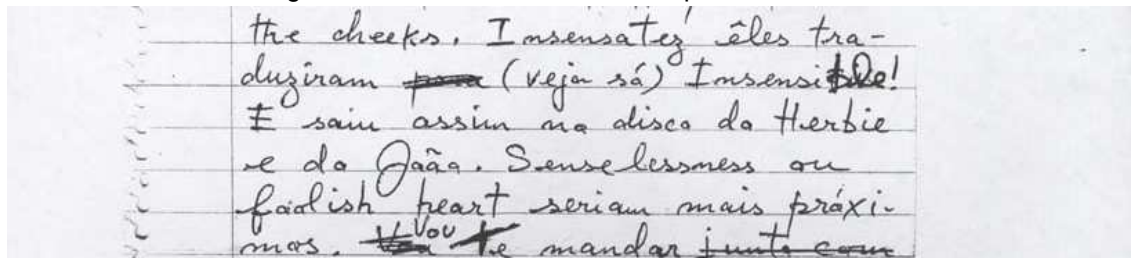 the cheeks. Insensatez êles tra-
duziram para (veja só) Insensible!
E saiu assim no disco do Herbie
e do João. Senselessness ou
foolish heart seriam mais próxi-
mos. Vou te mandar junto com